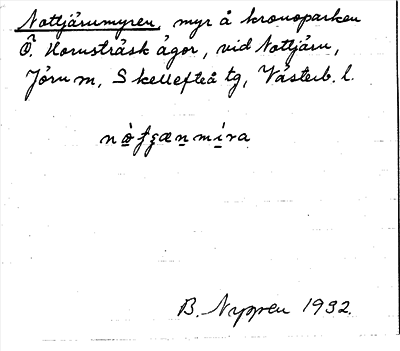 Nottjärnmyren, myr å kronoparken
Ö. Hornsträsk ägor, vid Nottjärn,
Jörn m, Skellefteå tg, Västerb. l.
B. Nyppen 1932.